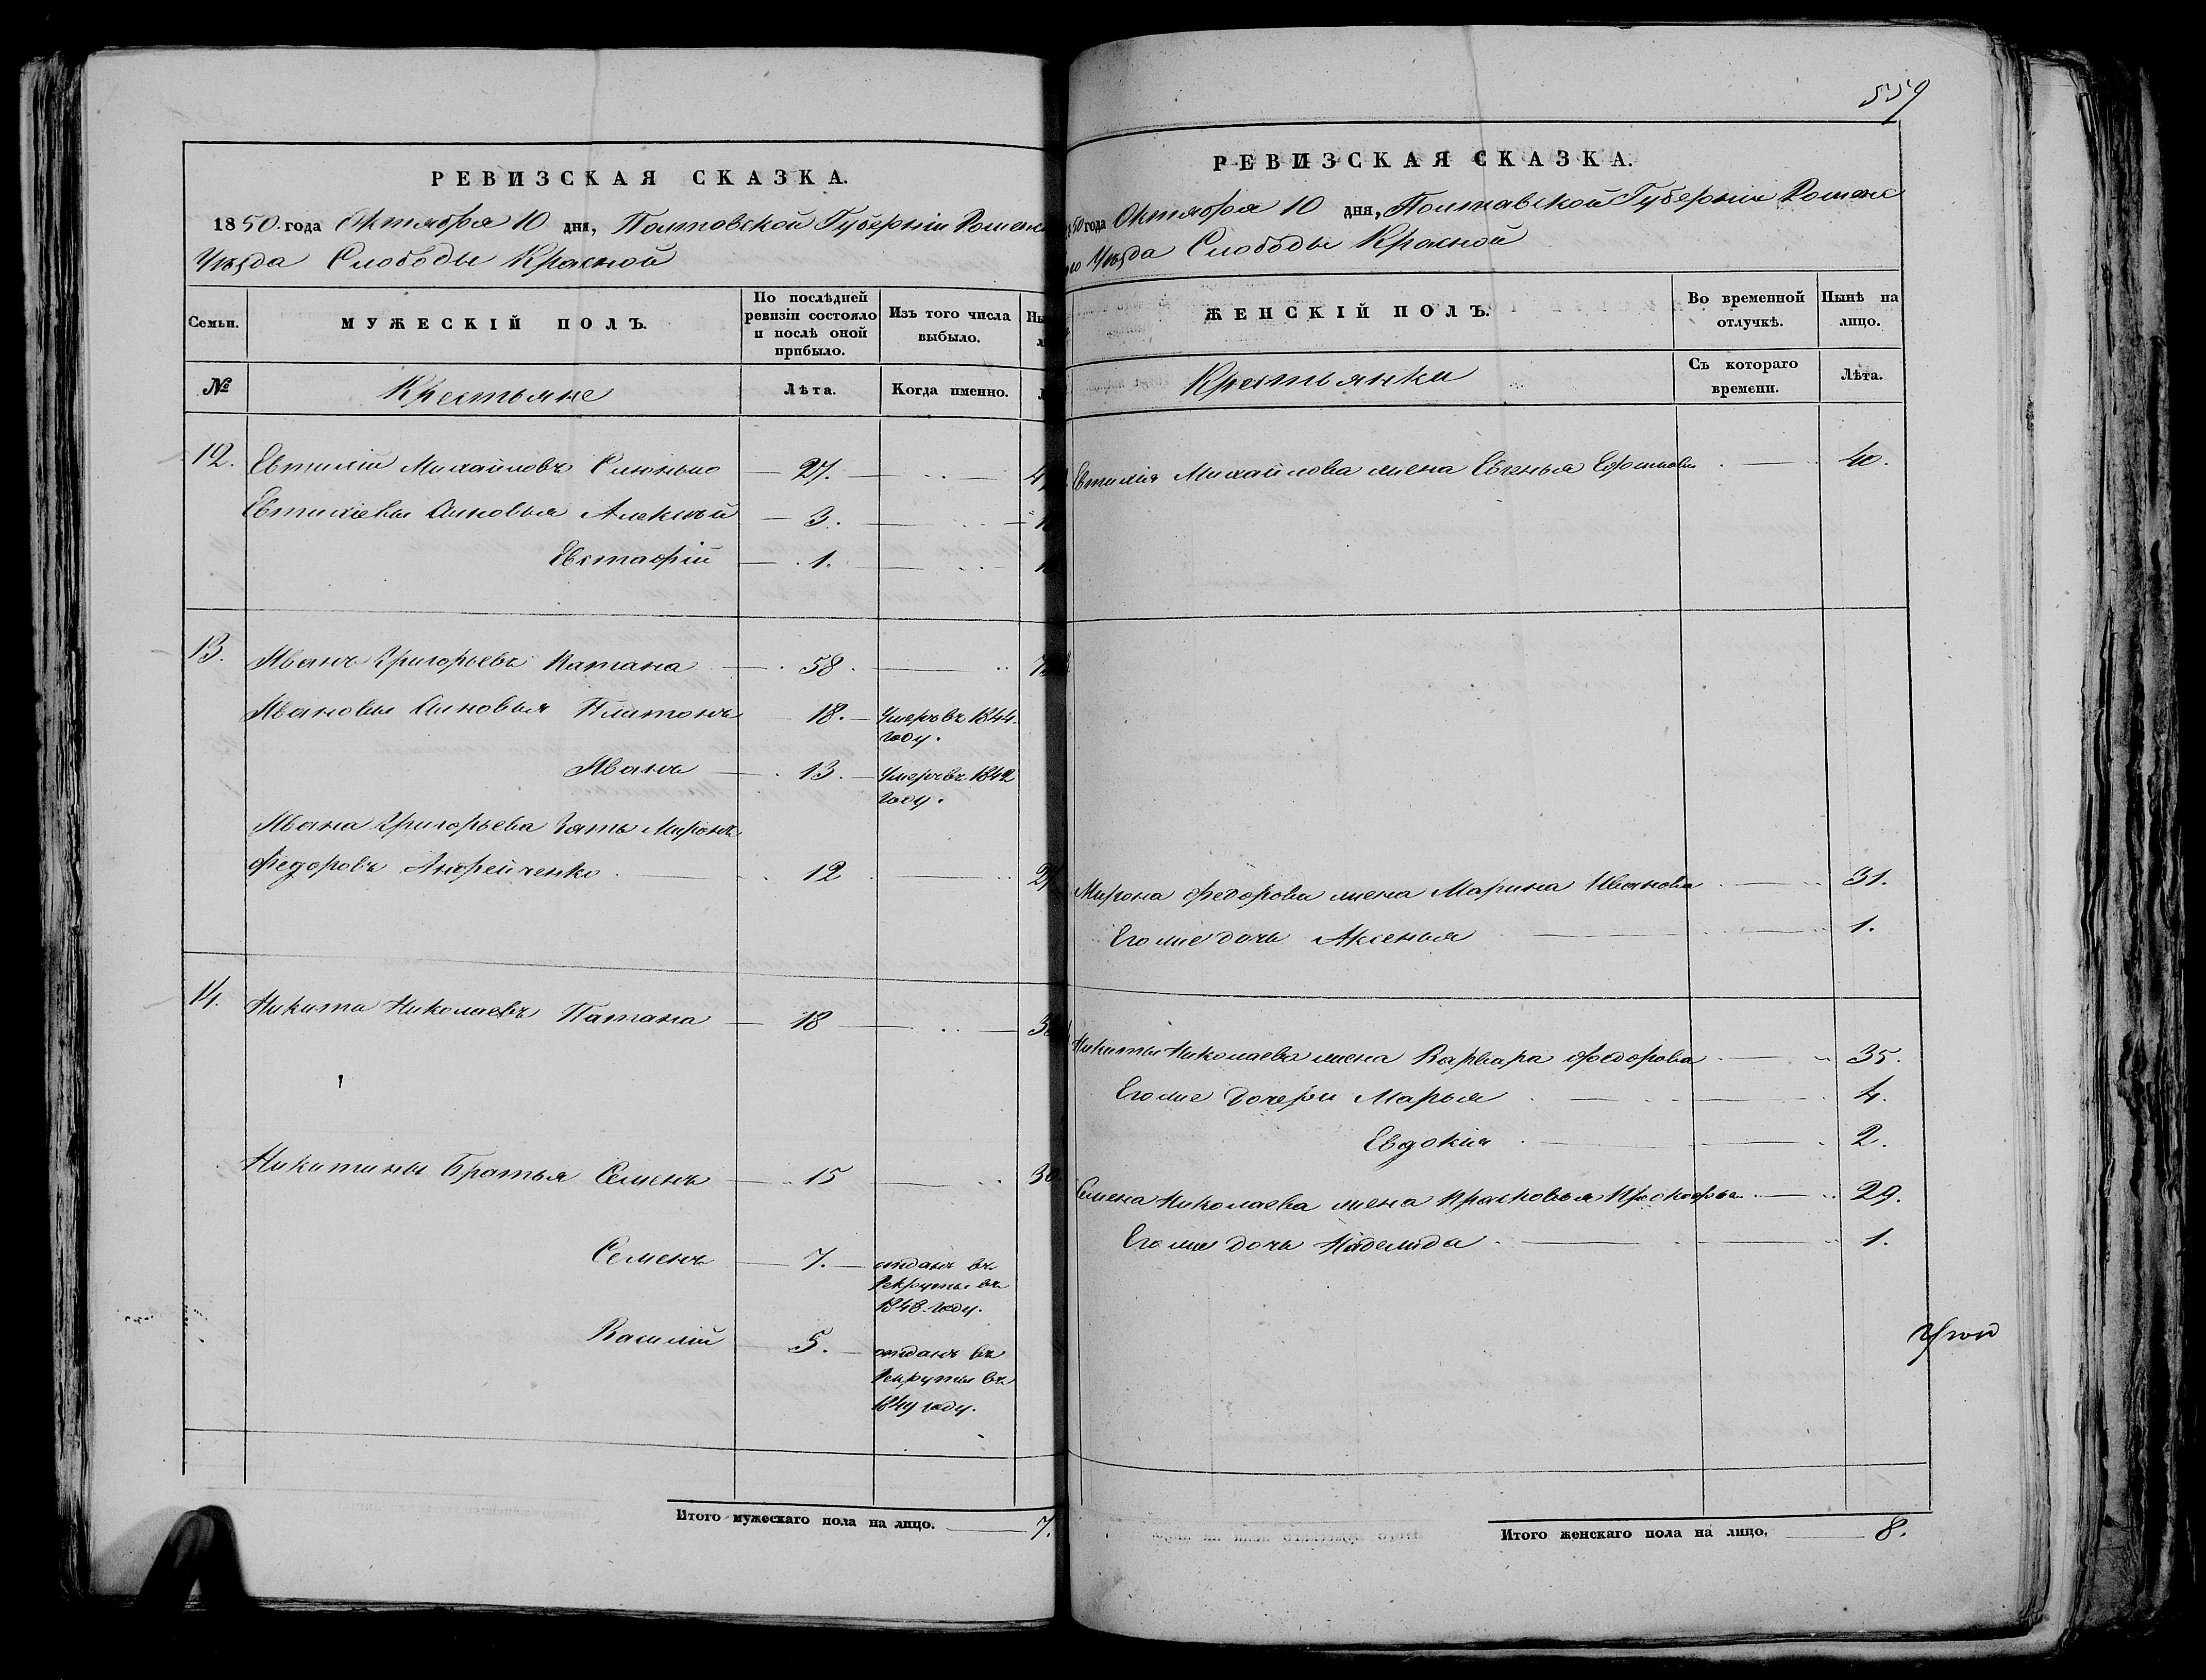 РЕВИЗСКАЯ СКАЗКА.
1850 года Октября 10 дня, Полтавской Губерніи Роменс
Уѣзда Слободы Красной
Семьи.
МУЖЕСКІЙ ПОЛЪ.
По послѣдней ревизіи состояло и послѣ оной прибыло.
Изъ того числа выбыло.
№
Крестьяне
Лѣта.
Когда именно.
12. Евтихій Михайловъ 27.
Евтихіевы Сыновья Алексѣй 3.
Евстафій 1.
13. Иванъ Григорьевъ Патана 58.
Ивановы Сыновья Платонъ 18. Умеръ въ 1844
году.
Иванъ 13. Умеръ въ 1842
году.
Ивана Григорьева Зять Миронъ
Федоровъ Андрейченко 12
14. Никита Николаевъ Патана 18
Никитины Братья Семенъ 15 30.
Семенъ 7. отданъ въ
Рекруты въ
1848 году.
Василій 5. отданъ въ
Рекруты въ
1849 году.
Итого мужескаго пола на лицо. 7.
559
РЕВИЗСКАЯ СКАЗКА.
50 года Октября 10 дня, Полтавской Губерніи Роменс
го Уѣзда Слободы Красной
ЖЕНСКІЙ ПОЛЪ.
Во временной отлучкѣ.
Нынѣ на лицо.
Крестьянки
Съ котораго времени.
Лѣта.
Евтихія Михайлова жена Евгенья 40.
Мирона Федорова жена Марина Иванова 31.
Его же дочь Аксенья 1.
Никиты Николаева жена Варвара Федорова 35.
Его же дочери Марья 4.
Евдокия 2.
Семена Николаева жена Прасковья Прокофьева 29.
Его же дочь Надежда 1.
Итого женскаго пола на лицо. 8.